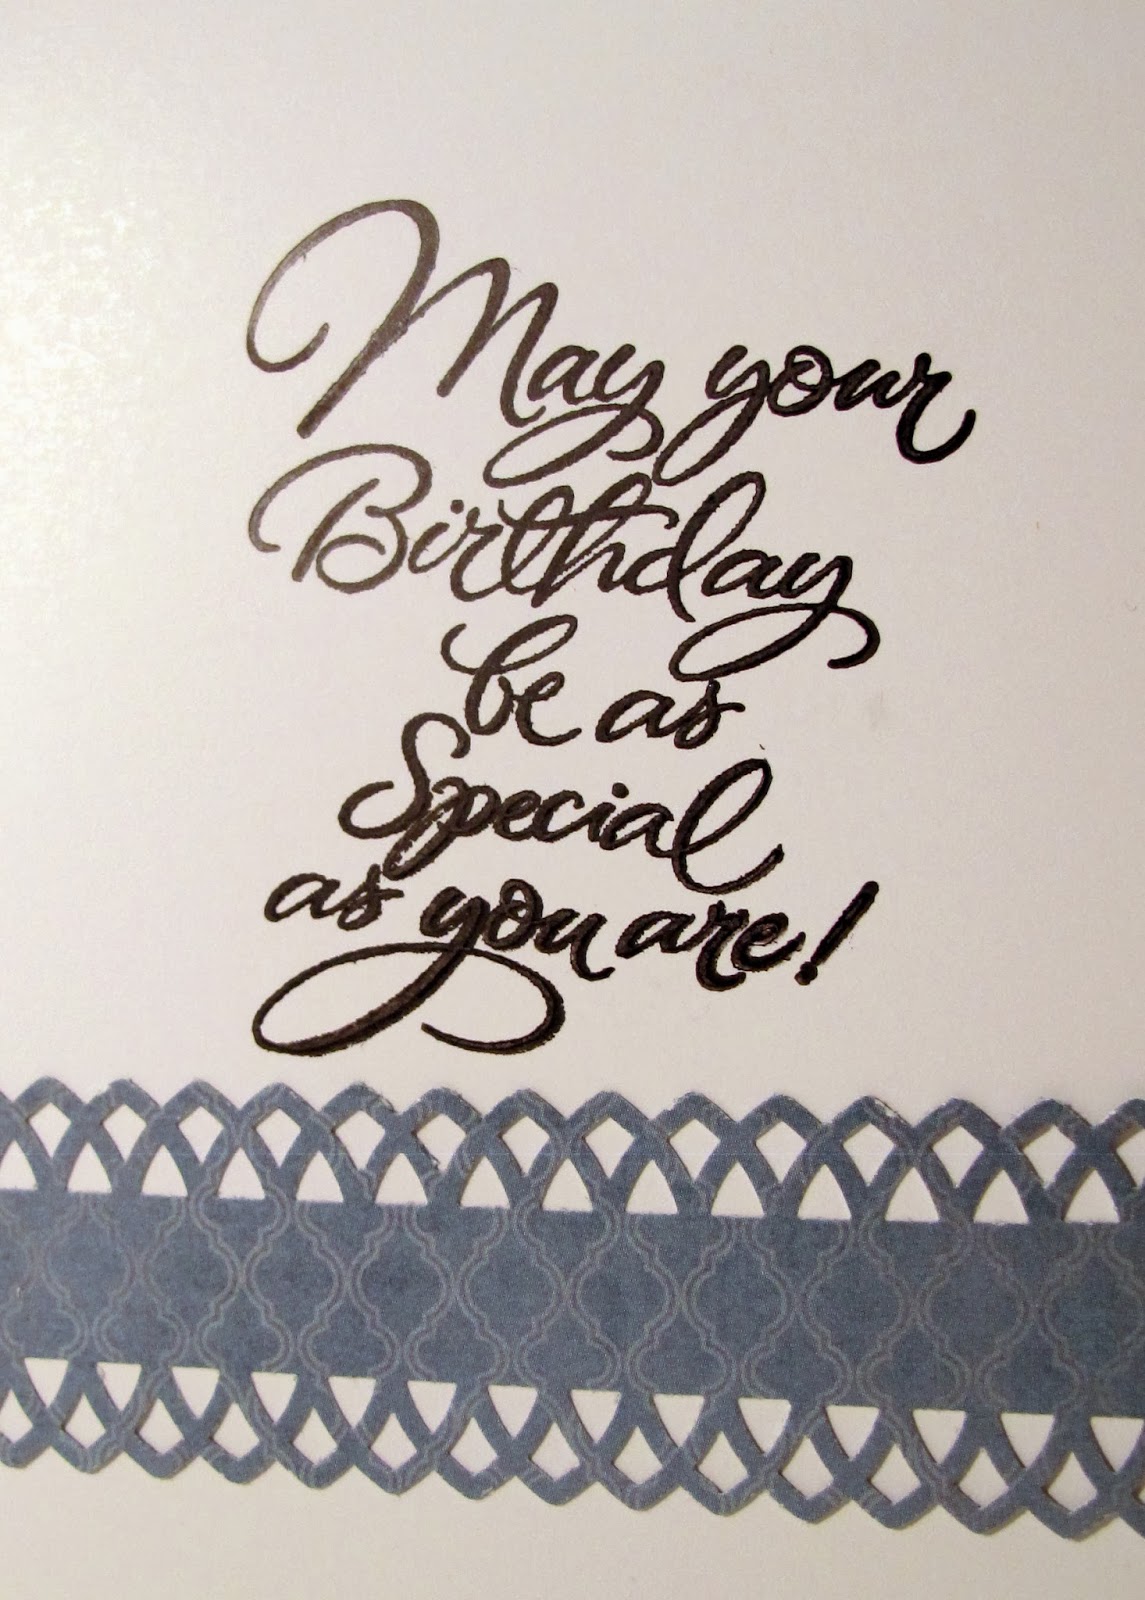 May your
Birthday
be as
Special
as you are!